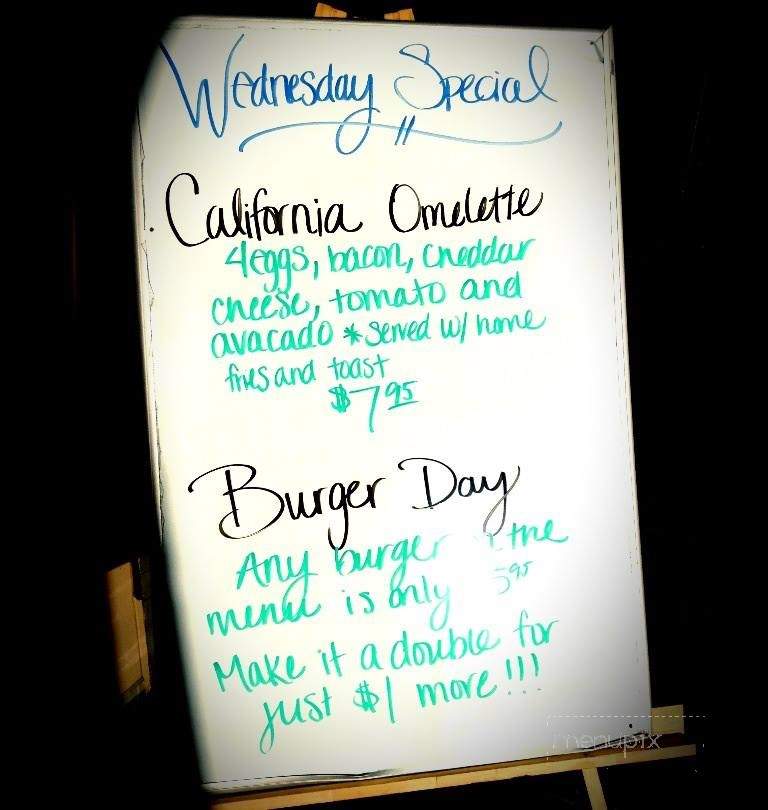 Wednesday Special
California Omelette
4eggs, bacon, cheddar
cheese, tomato and
avacado *served w/ home
fries and toast
$7 95
Burger Day
Any burger the
menu is only 5 95
Make it a double for
just $1 more!!!
menupix